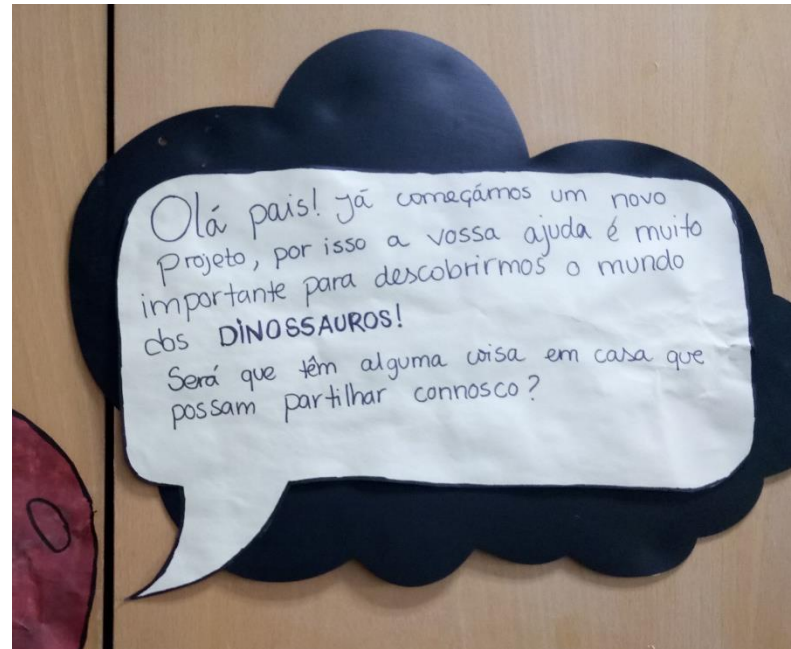 Olá pais! Já começámos um novo
projeto, por isso a vossa ajuda é muito
importante para descobrirmos o mundo
dos DINOSSAUROS!
Será que têm alguma coisa em casa que
possam partilhar connosco?